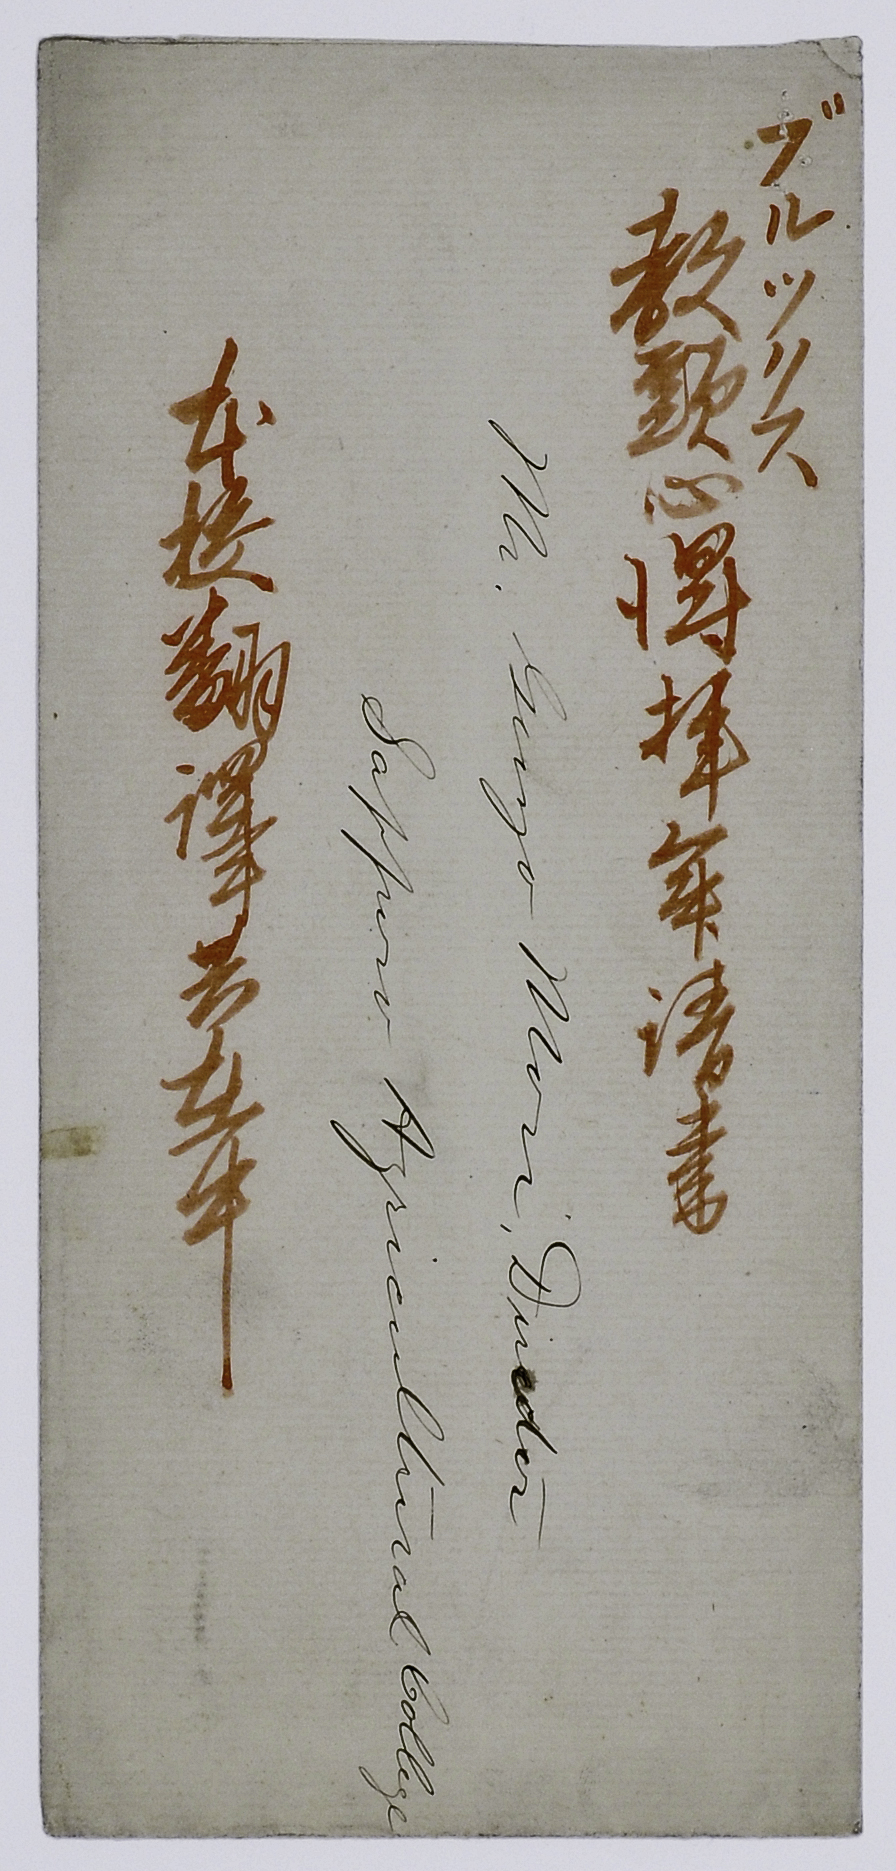 ブルツクス
教頭心得拝命請書
Mr. Genzo Mori, Director
Sapporo Agricultural College
本校翻譯共在中